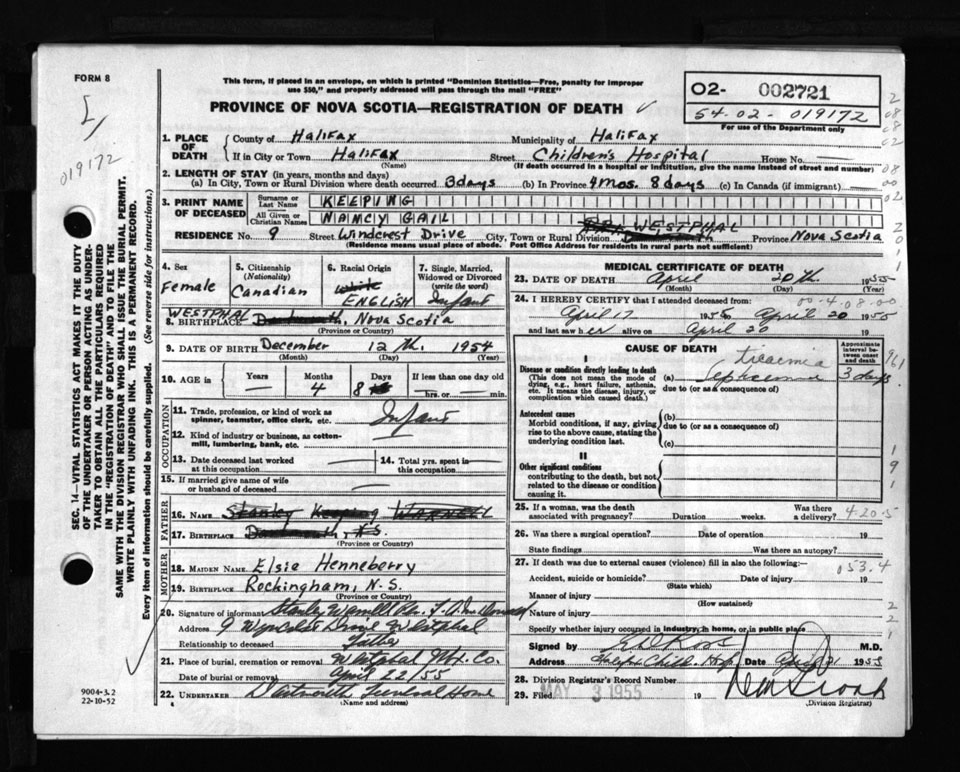 FORM 8
This form, if placed in an envelope, on which is printed "Dominion Statistics—Free, penalty for improper
use $50," and properly addressed will pass through the mail "FREE"
PROVINCE OF NOVA SCOTIA—REGISTRATION OF DEATH
02- 002721
54-02-019172
For use of the Department only
019172
SEC. 14—VITAL STATISTICS ACT MAKES IT THE DUTY
OF THE UNDERTAKER OR PERSON ACTING AS UNDER-
TAKER TO OBTAIN ALL THE PARTICULARS REQUIRED
IN THE "REGISTRATION OF DEATH" AND TO FILE THE
SAME WITH THE DIVISION REGISTRAR WHO SHALL ISSUE THE BURIAL PERMIT.
WRITE PLAINLY WITH UNFADING INK. THIS IS A PERMANENT RECORD.
Every item of information should be carefully supplied. (See reverse side for instructions.)
1. PLACE OF DEATH County of Halifax Municipality of Halifax
If in City or Town Halifax Street Children's Hospital House No. —
(Name) (If death occurred in a hospital or institution, give the name instead of street and number)
2. LENGTH OF STAY (in years, months and days)
(a) In City, Town or Rural Division where death occurred 3 days (b) In Province 4 mos. 8 days (c) In Canada (if immigrant)
3. PRINT NAME OF DECEASED Surname or Last Name KEEPING
All Given or Christian Names NANCY GAIL
RESIDENCE No. 9 Street Windcrest Drive City, Town or Rural Division WESTPHAL Province Nova Scotia
(Residence means usual place of abode. Post Office Address for residents in rural parts not sufficient)
4. Sex Female
5. Citizenship (Nationality) Canadian
6. Racial Origin White ENGLISH
7. Single, Married, Widowed or Divorced (write the word) Infant
8. BIRTHPLACE WESTPHAL Dartmouth, Nova Scotia
(Province or Country)
9. DATE OF BIRTH December 12 th. 1954
(Month) (Day) (Year)
10. AGE in Years — Months 4 Days 8 If less than one day old
hrs. or — min.
OCCUPATION
11. Trade, profession, or kind of work as spinner, teamster, office clerk, etc. Infant
12. Kind of industry or business, as cotton-mill, lumbering, bank, etc. —
13. Date deceased last worked at this occupation —
14. Total yrs. spent in this occupation —
15. If married give name of wife or husband of deceased —
FATHER
16. NAME Stanley Keeping WARNELL
17. BIRTHPLACE Dartmouth, N.S.
(Province or Country)
MOTHER
18. MAIDEN NAME Elsie Henneberry
19. BIRTHPLACE Rockingham, N.S.
(Province or Country)
20. Signature of informant Stanley
Address 9 Drive Westphal
Relationship to deceased Father
21. Place of burial, cremation or removal Westphal Hx. Co.
Date of burial or removal April 22/55
22. UNDERTAKER Dartmouth Funeral Home
(Name and address)
9004-3.2
22-10-52
MEDICAL CERTIFICATE OF DEATH
23. DATE OF DEATH April 20 th 1955
(Month) (Day)
00-4-08-00
24. I HEREBY CERTIFY that I attended deceased from:
April 17 1955 to April 20 1955
and last saw her alive on April 20
CAUSE OF DEATH
Approximate interval between onset and death
I
Disease or condition directly leading to death
(This does not mean the mode of dying, e.g., heart failure, asthenia, etc. It means the disease, injury, or complication which caused death.)
(a) Septicemia 3 days
due to (or as a consequence of)
Antecedent causes
Morbid conditions, if any, giving rise to the above cause, stating the underlying condition last.
(b)
due to (or as a consequence of)
(c)
II
Other significant conditions
contributing to the death, but not related to the disease or condition causing it.
25. If a woman, was the death associated with pregnancy? Duration weeks. Was there a delivery? 4-20-5
26. Was there a surgical operation? Date of operation 19
State findings Was there an autopsy?
27. If death was due to external causes (violence) fill in also the following: 053.4
Accident, suicide or homicide? Date of injury 19
(State which)
Manner of injury
(How sustained)
Nature of injury
Specify whether injury occurred in industry, in home, or in public place
Signed by M.D.
Address Date April 21 1955
28. Division Registrar's Record Number
29. Filed MAY 3 1955 19
(Division Registrar)